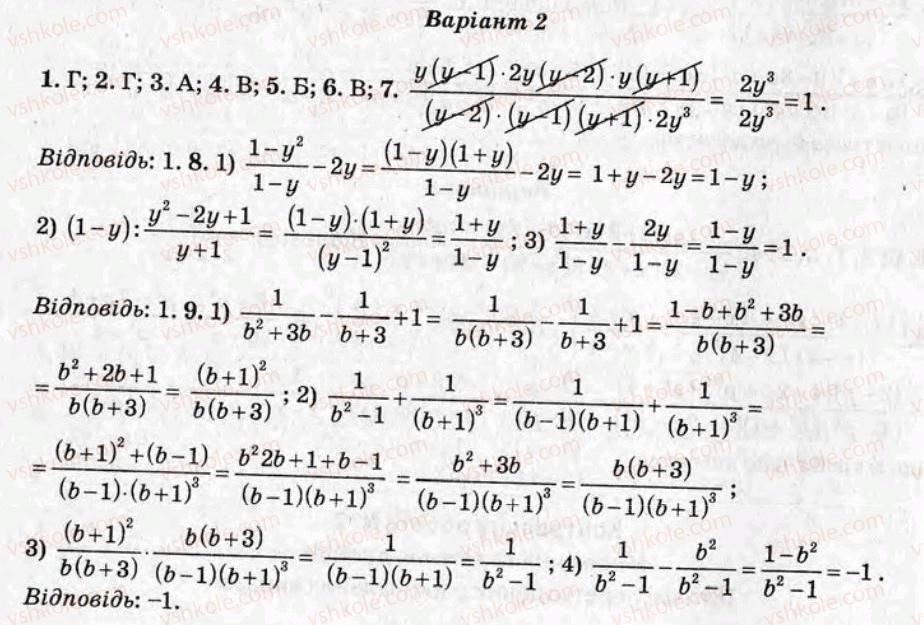 Варіант 2
1. Г; 2. Г; 3. А; 4. В; 5. Б; 6. В; 7. \frac{y(y-1)·2y(y-2)·y(y+1)}{(y-2)·(y-1)(y+1)·2y³} = \frac{2y³}{2y³} = 1.
Відповідь: 1. 8. 1) \frac{1-y²}{1-y} - 2y = \frac{(1-y)(1+y)}{1-y} - 2y = 1+y-2y = 1-y;
2) (1-y) : \frac{y²-2y+1}{y+1} = \frac{(1-y)·(1+y)}{(y-1)²} = \frac{1+y}{1-y}; 3) \frac{1+y}{1-y} - \frac{2y}{1-y} = \frac{1-y}{1-y} = 1.
Відповідь: 1. 9. 1) \frac{1}{b²+3b} - \frac{1}{b+3} + 1 = \frac{1}{b(b+3)} - \frac{1}{b+3} + 1 = \frac{1-b+b²+3b}{b(b+3)} =
= \frac{b²+2b+1}{b(b+3)} = \frac{(b+1)²}{b(b+3)}; 2) \frac{1}{b²-1} + \frac{1}{(b+1)³} = \frac{1}{(b-1)(b+1)} + \frac{1}{(b+1)³} =
= \frac{(b+1)²+(b-1)}{(b-1)·(b+1)³} = \frac{b²2b+1+b-1}{(b-1)(b+1)³} = \frac{b²+3b}{(b-1)(b+1)³} = \frac{b(b+3)}{(b-1)(b+1)³};
3) \frac{(b+1)²}{b(b+3)} · \frac{b(b+3)}{(b-1)(b+1)³} = \frac{1}{(b-1)(b+1)} = \frac{1}{b²-1}; 4) \frac{1}{b²-1} - \frac{b²}{b²-1} = \frac{1-b²}{b²-1} = -1.
Відповідь: -1.